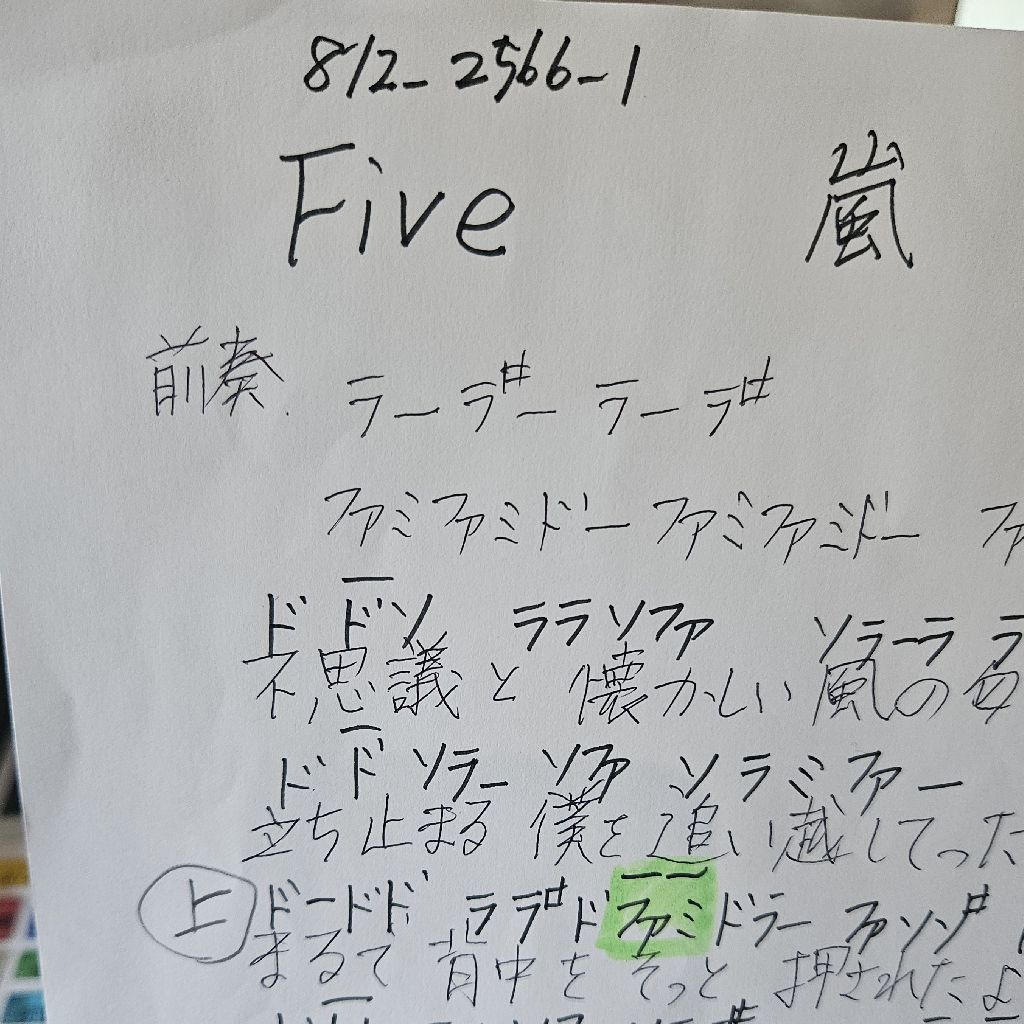 812-2566-1
Five 嵐
前奏 ラーラ#ー ラーラ#
ファミファミドー ファミファミドー ファ
ド ドソ ララソファ ソラーラ ラ
不思議と 懐かしい 風の
ド ド ソラー ソファ ソラミファー
立ち止まる 僕を 追い越してった
上 ドードド ララ#ドファミドラー ファソソ#
まるで 背中を そっと 押されたよ